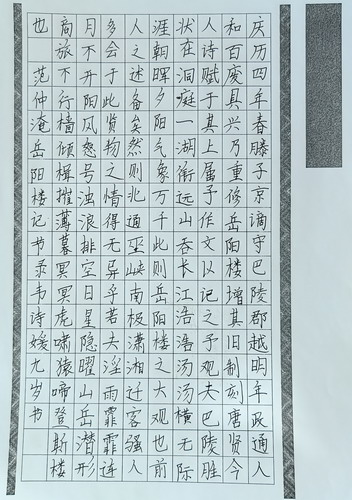 庆历四年春滕子京谪守巴陵郡越明年政通人
和百废具兴乃重修岳阳楼增其旧制刻唐贤今
人诗赋于其上属予作文以记之予观夫巴陵胜
状在洞庭一湖衔远山吞长江浩浩汤汤横无际
涯朝晖夕阴气象万千此则岳阳楼之大观也前
人之述备矣然则北通巫峡南极潇湘迁客骚人
多会于此览物之情得无异乎若夫淫雨霏霏连
月不开阴风怒号浊浪排空日星隐曜山岳潜形
商旅不行樯倾楫摧薄暮冥冥虎啸猿啼登斯楼
也 范仲淹岳阳楼记书录韦诗媛九岁书